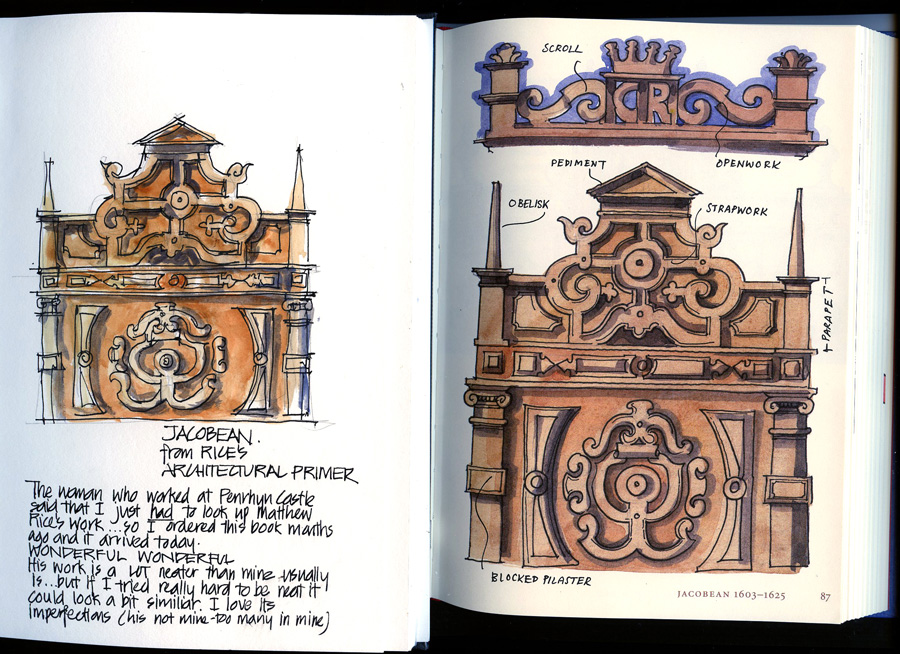 JACOBEAN.
from RICE'S
ARCHITECTURAL PRIMER
The woman who worked at Penrhyn Castle
said that I just had to look up Matthew
Rice's work...so I ordered this book months
ago and it arrived today.
WONDERFUL WONDERFUL
His work is a LOT neater than mine usually
is...but if I tried really hard to be neat it
could look a bit similiar. I love its
imperfections (his not mine-too many in mine)
SCROLL
CR
OPENWORK
PEDIMENT
OBELISK
STRAPWORK
PARAPET
BLOCKED PILASTER
JACOBEAN 1603–1625 87